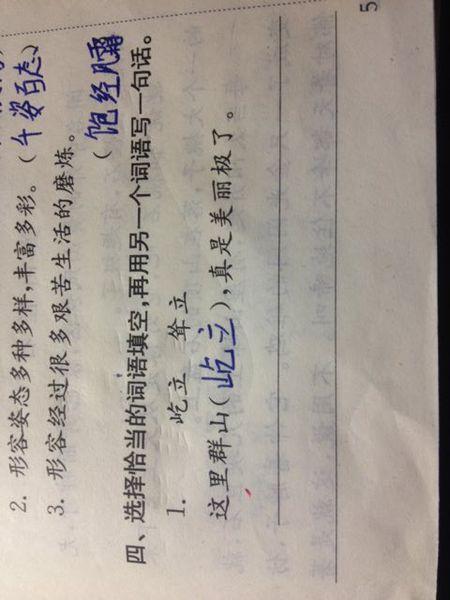 2. 形容姿态多种多样,丰富多彩。(千姿百态)
3. 形容经过很多艰苦生活的磨炼。
(饱经风霜
四、选择恰当的词语填空,再用另一个词语写一句话。
1. 屹立 耸立
这里群山(屹立),真是美丽极了。
5